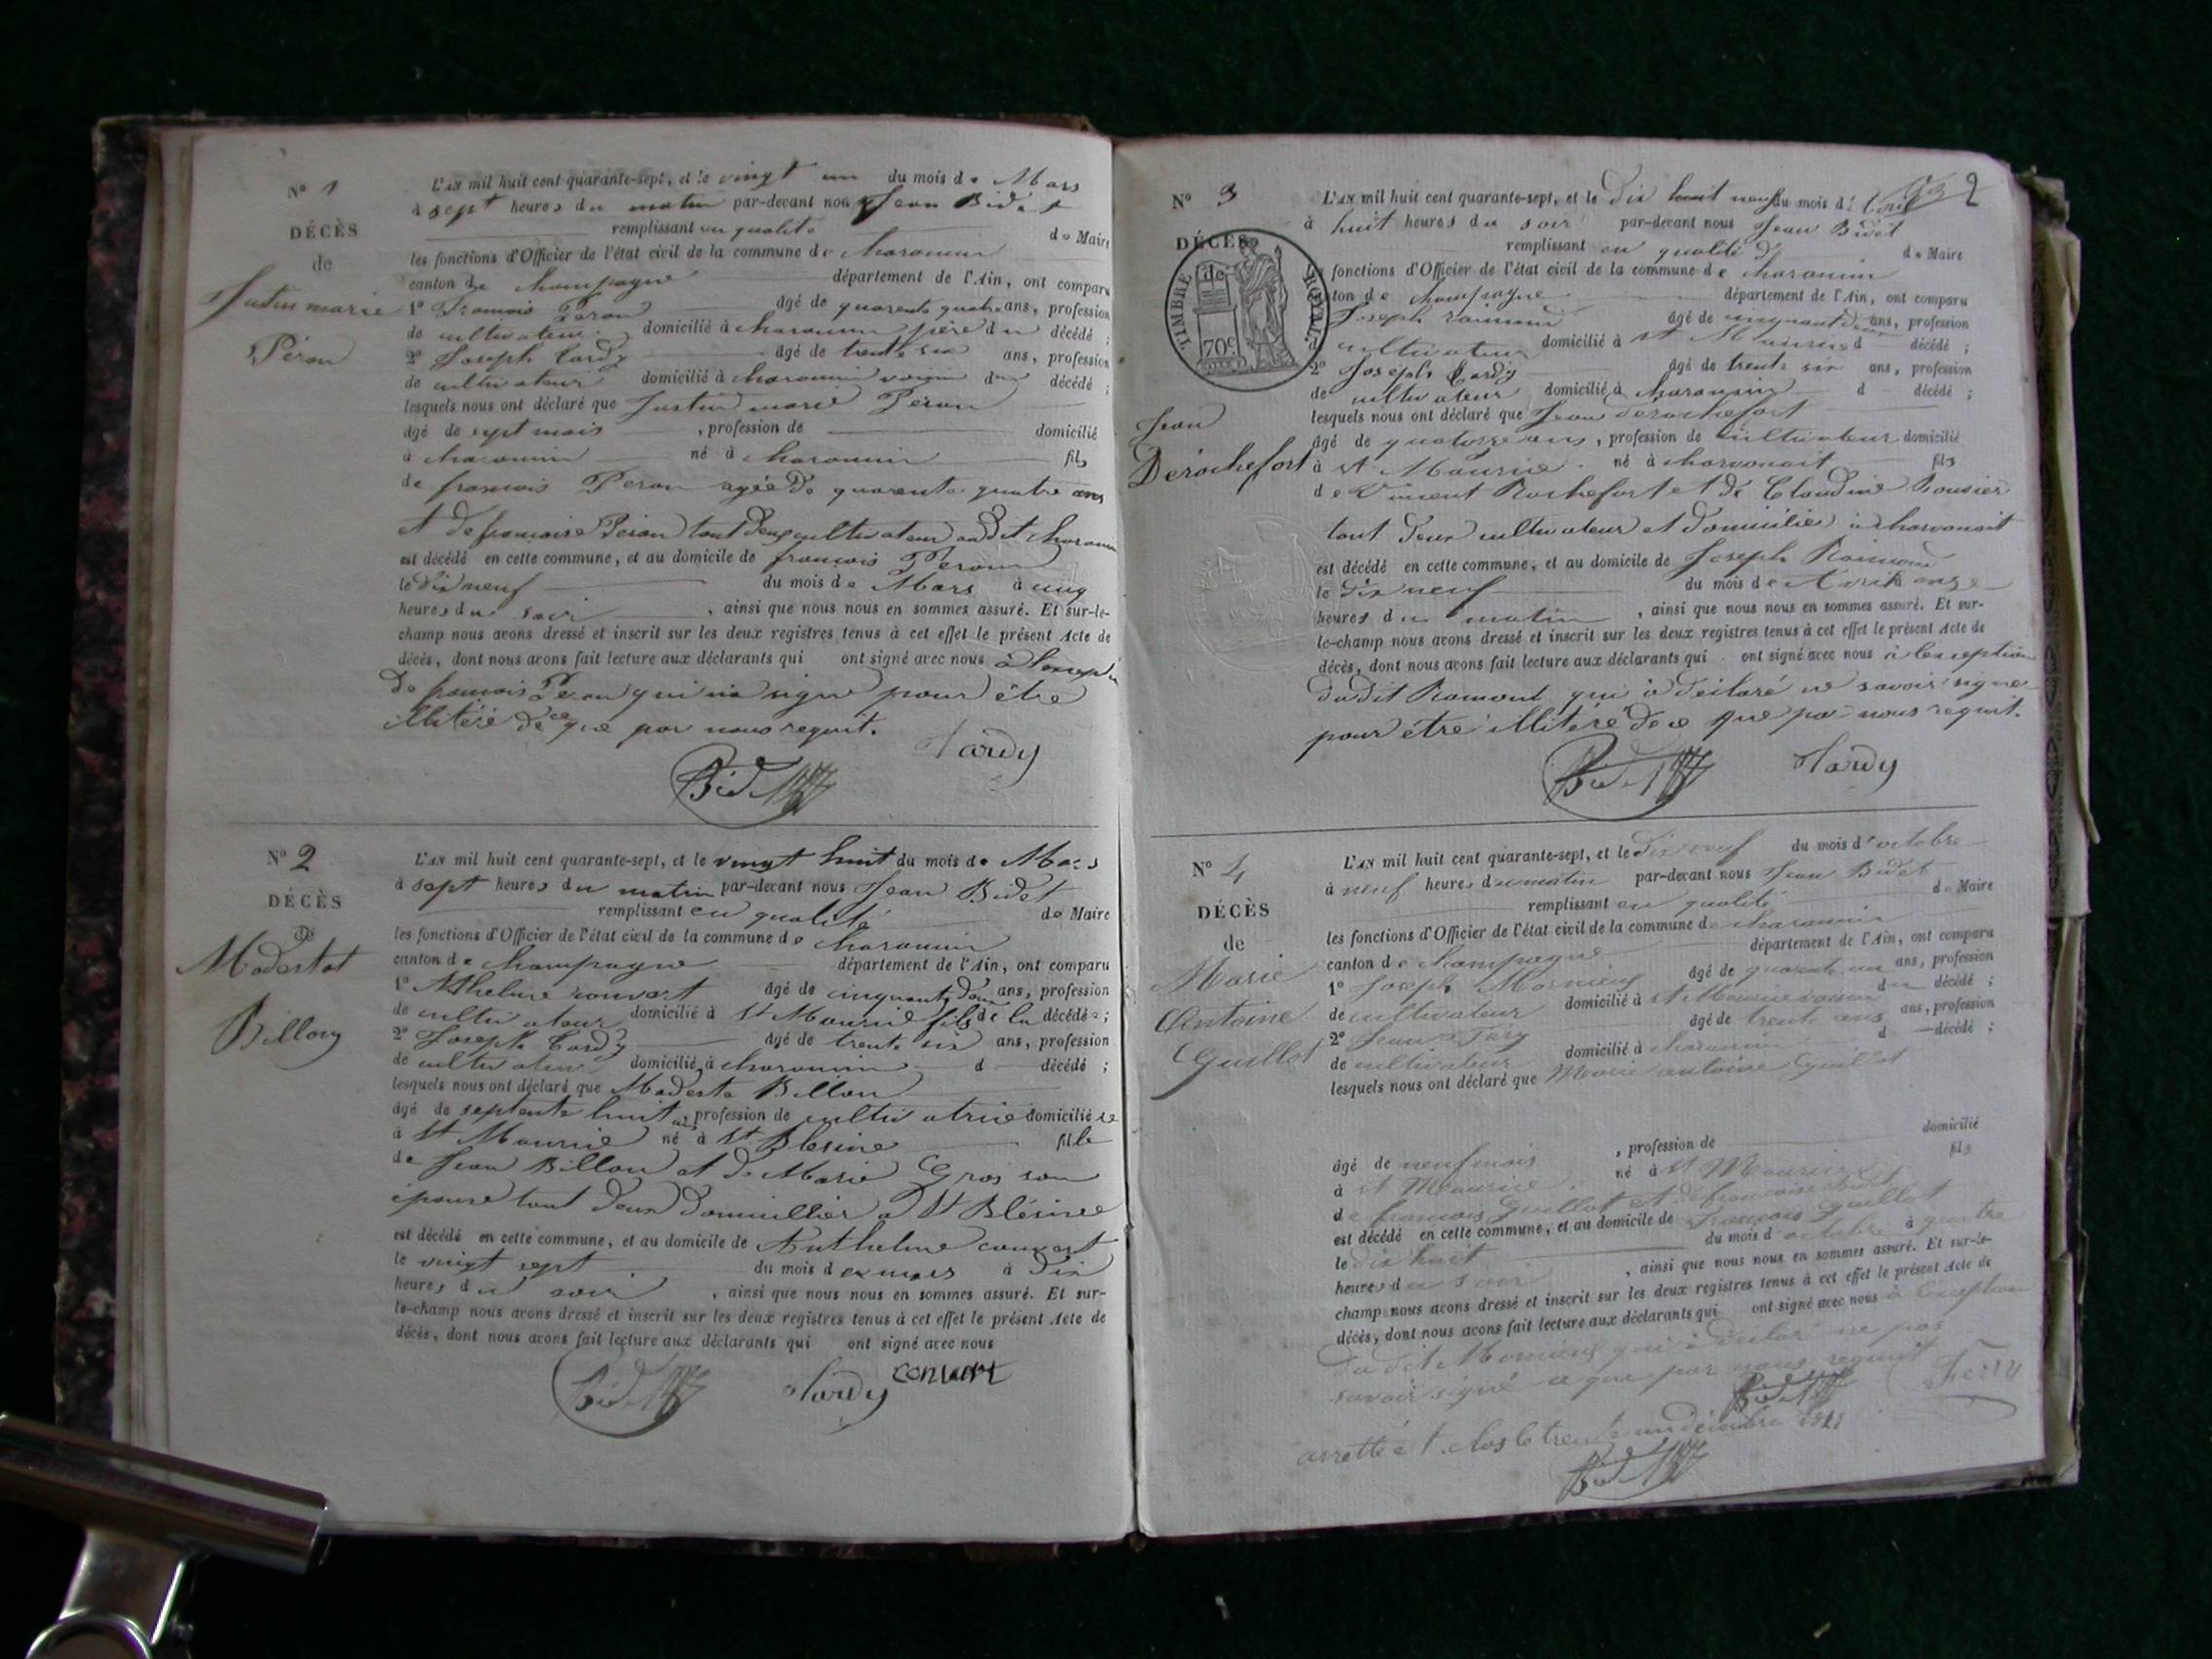 N° 1
DÉCÈS
de
Justin marie
Péron
L'AN mil huit cent quarante-sept, et le vingt un du mois de Mars
à sept heures du matin par-devant nous Jean Bidet
remplissant en qualité de Maire
les fonctions d'Officier de l'état civil de la commune de charancin
canton de champagne département de l'Ain, ont comparu
1° François Péron âgé de quarente quatre ans, profession
de cultivateur domicilié à charancin père du décédé ;
2° Joseph tardy âgé de trente six ans, profession
de cultivateur domicilié à charancin voisin du décédé ;
lesquels nous ont déclaré que Justin marie Péron
âgé de sept mois , profession de domicilié
à charancin né à charancin fils
de francois Peron agée de quarente quatre ans
et de francoise Péron tout deux cultivateur audit charancin
est décédé en cette commune, et au domicile de francois Peron
le dix neuf du mois de Mars à
heures du soir , ainsi que nous nous en sommes assuré. Et sur-le-
champ nous avons dressé et inscrit sur les deux registres tenus à cet effet le présent Acte de
décès, dont nous avons fait lecture aux déclarants qui ont signé avec nous
de francois Peron qui na signé pour être
illitéré de ce que par nous requit.
Tardy
Bidet
N° 2
DÉCÈS
de
Modestot
Billon
L'AN mil huit cent quarante-sept, et le vingt huit du mois de Mars
à sept heures du matin par-devant nous Jean Bidet
remplissant en qualité de Maire
les fonctions d'Officier de l'état civil de la commune de charancin
canton de champagne département de l'Ain, ont comparu
1° Athelme convert âgé de cinquante deux ans, profession
de cultivateur domicilié à St Maurice fils de la décédée ;
2° Joseph tardy âgé de trente six ans, profession
de cultivateur domicilié à charancin d décédé ;
lesquels nous ont déclaré que Modeste Billon
âgé de septente huit ans, profession de cultivatrice domiciliée
à St Maurice né à St Blesine fille
de Jean Billon et de Marie Gros son
épouse tout deux domicillier a St Blésine
est décédé en cette commune, et au domicile de Anthelme convert
le vingt sept du mois de mars à dix
heures du soir , ainsi que nous nous en sommes assuré. Et sur-
le-champ nous avons dressé et inscrit sur les deux registres tenus à cet effet le présent Acte de
décès, dont nous avons fait lecture aux déclarants qui ont signé avec nous
Bidet Tardy convert
2
N° 3
DÉCÈS
de
TIMBRE ROYAL
70c
Jean
Dérochefort
L'AN mil huit cent quarante-sept, et le dix huit neuf du mois d'Avril
à huit heures du soir par-devant nous Jean Bidet
remplissant en qualité d de Maire
fonctions d'Officier de l'état civil de la commune de charancin
canton de champagne département de l'Ain, ont comparu
Joseph raimond âgé de cinquant deux ans, profession
cultivateur domicilié à st Maurice d décédé ;
2° Joseph tardy âgé de trente six ans, profession
de cultivateur domicilié à charancin d décédé ;
lesquels nous ont déclaré que Jean derochefort
âgé de quatorze ans, profession de cultivateur domicilié
à st Maurice né à charvonait fils
de Vincent Rochefort et de Claudine Rousier
tout deux cultivateur et domicilié à charvonait
est décédé en cette commune, et au domicile de Joseph Raimond
le dix neuf du mois de Avril à onze
heures du matin , ainsi que nous nous en sommes assuré. Et sur-
le-champ nous avons dressé et inscrit sur les deux registres tenus à cet effet le présent Acte de
décès, dont nous avons fait lecture aux déclarants qui ont signé avec nous à lexception
dudit Ramont qui à déclaré ne savoir signe
pour être illitéré de ce que par nous requit.
Bidet Tardy
N° 4
DÉCÈS
de
Marie
Antoine
Guillot
L'AN mil huit cent quarante-sept, et le dix neuf du mois d'octobre
à neuf heures du matin par-devant nous Jean Bidet
remplissant en qualité de Maire
les fonctions d'Officier de l'état civil de la commune de charancin
canton de champagne département de l'Ain, ont comparu
1° Joseph âgé de quarente un ans, profession
de cultivateur domicilié à st Maurice voisin du décédé ;
2° Jean Féry âgé de trente ans ans, profession
de cultivateur domicilié à charancin d décédé ;
lesquels nous ont déclaré que Marie antoine Guillot
âgé de neuf mois , profession de domicilié
à st Maurice né à st Maurice fils
de francois Guillot et de francoise Bidet
est décédé en cette commune, et au domicile de francois Guillot
le dix huit du mois d'octobre à quatre
heures du soir , ainsi que nous nous en sommes assuré. Et sur-le-
champ nous avons dressé et inscrit sur les deux registres tenus à cet effet le présent Acte de
décès, dont nous avons fait lecture aux déclarants qui ont signé avec nous à lexception
du dit qui à déclaré ne pas
savoir signé ce que par nous requit
Bidet Ferry
arretté et clos le trente un décembre
Bidet